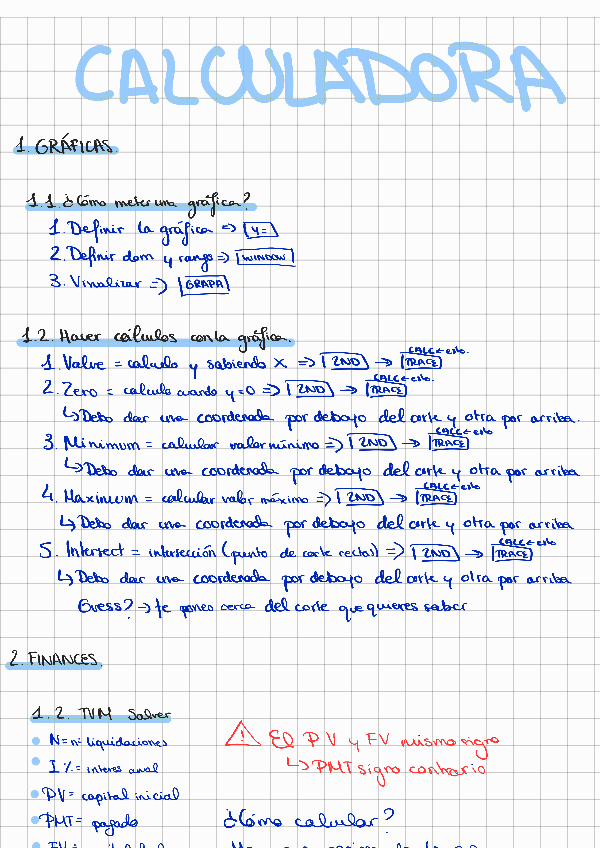 CALCULADORA
1. GRÁFICAS.
1.1. ¿Cómo meter una gráfica?
1. Definir la gráfica => Y=
2. Definir dom y rango => WINDOW
3. Vinalizar => GRAPA
1.2. Hacer cálculos con la gráfica.
CALC ← esto.
1. Valve = calculo y sabiendo x => 2ND → TRACE
CALC ← esto.
2. Zero = calculo cuando y=0 => 2ND → TRACE
↳ Debo dar una coordenada por debajo del corte y otra por arriba.
CALC ← esto
3. Minimum = calcular valor mínimo => 2ND → TRACE
↳ Debo dar una coordenada por debajo del corte y otra por arriba
CALC ← esto
4. Maximum = calcular valor máximo => 2ND → TRACE
↳ Debo dar una coordenada por debajo del corte y otra por arriba
CALC ← esto
5. Intersect = intersección (punto de corte rectas) => 2ND → TRACE
↳ Debo dar una coordenada por debajo del corte y otra por arriba
Guess? → te pones cerca del corte que quieres saber
2. FINANCES.
1.2. TVM Solver
N = nº liquidaciones
⚠ El PV y FV mismo signo
I% = interes anual
↳ PMT signo contrario
PV = capital inicial
PMT = pagado
¿Cómo calcular?